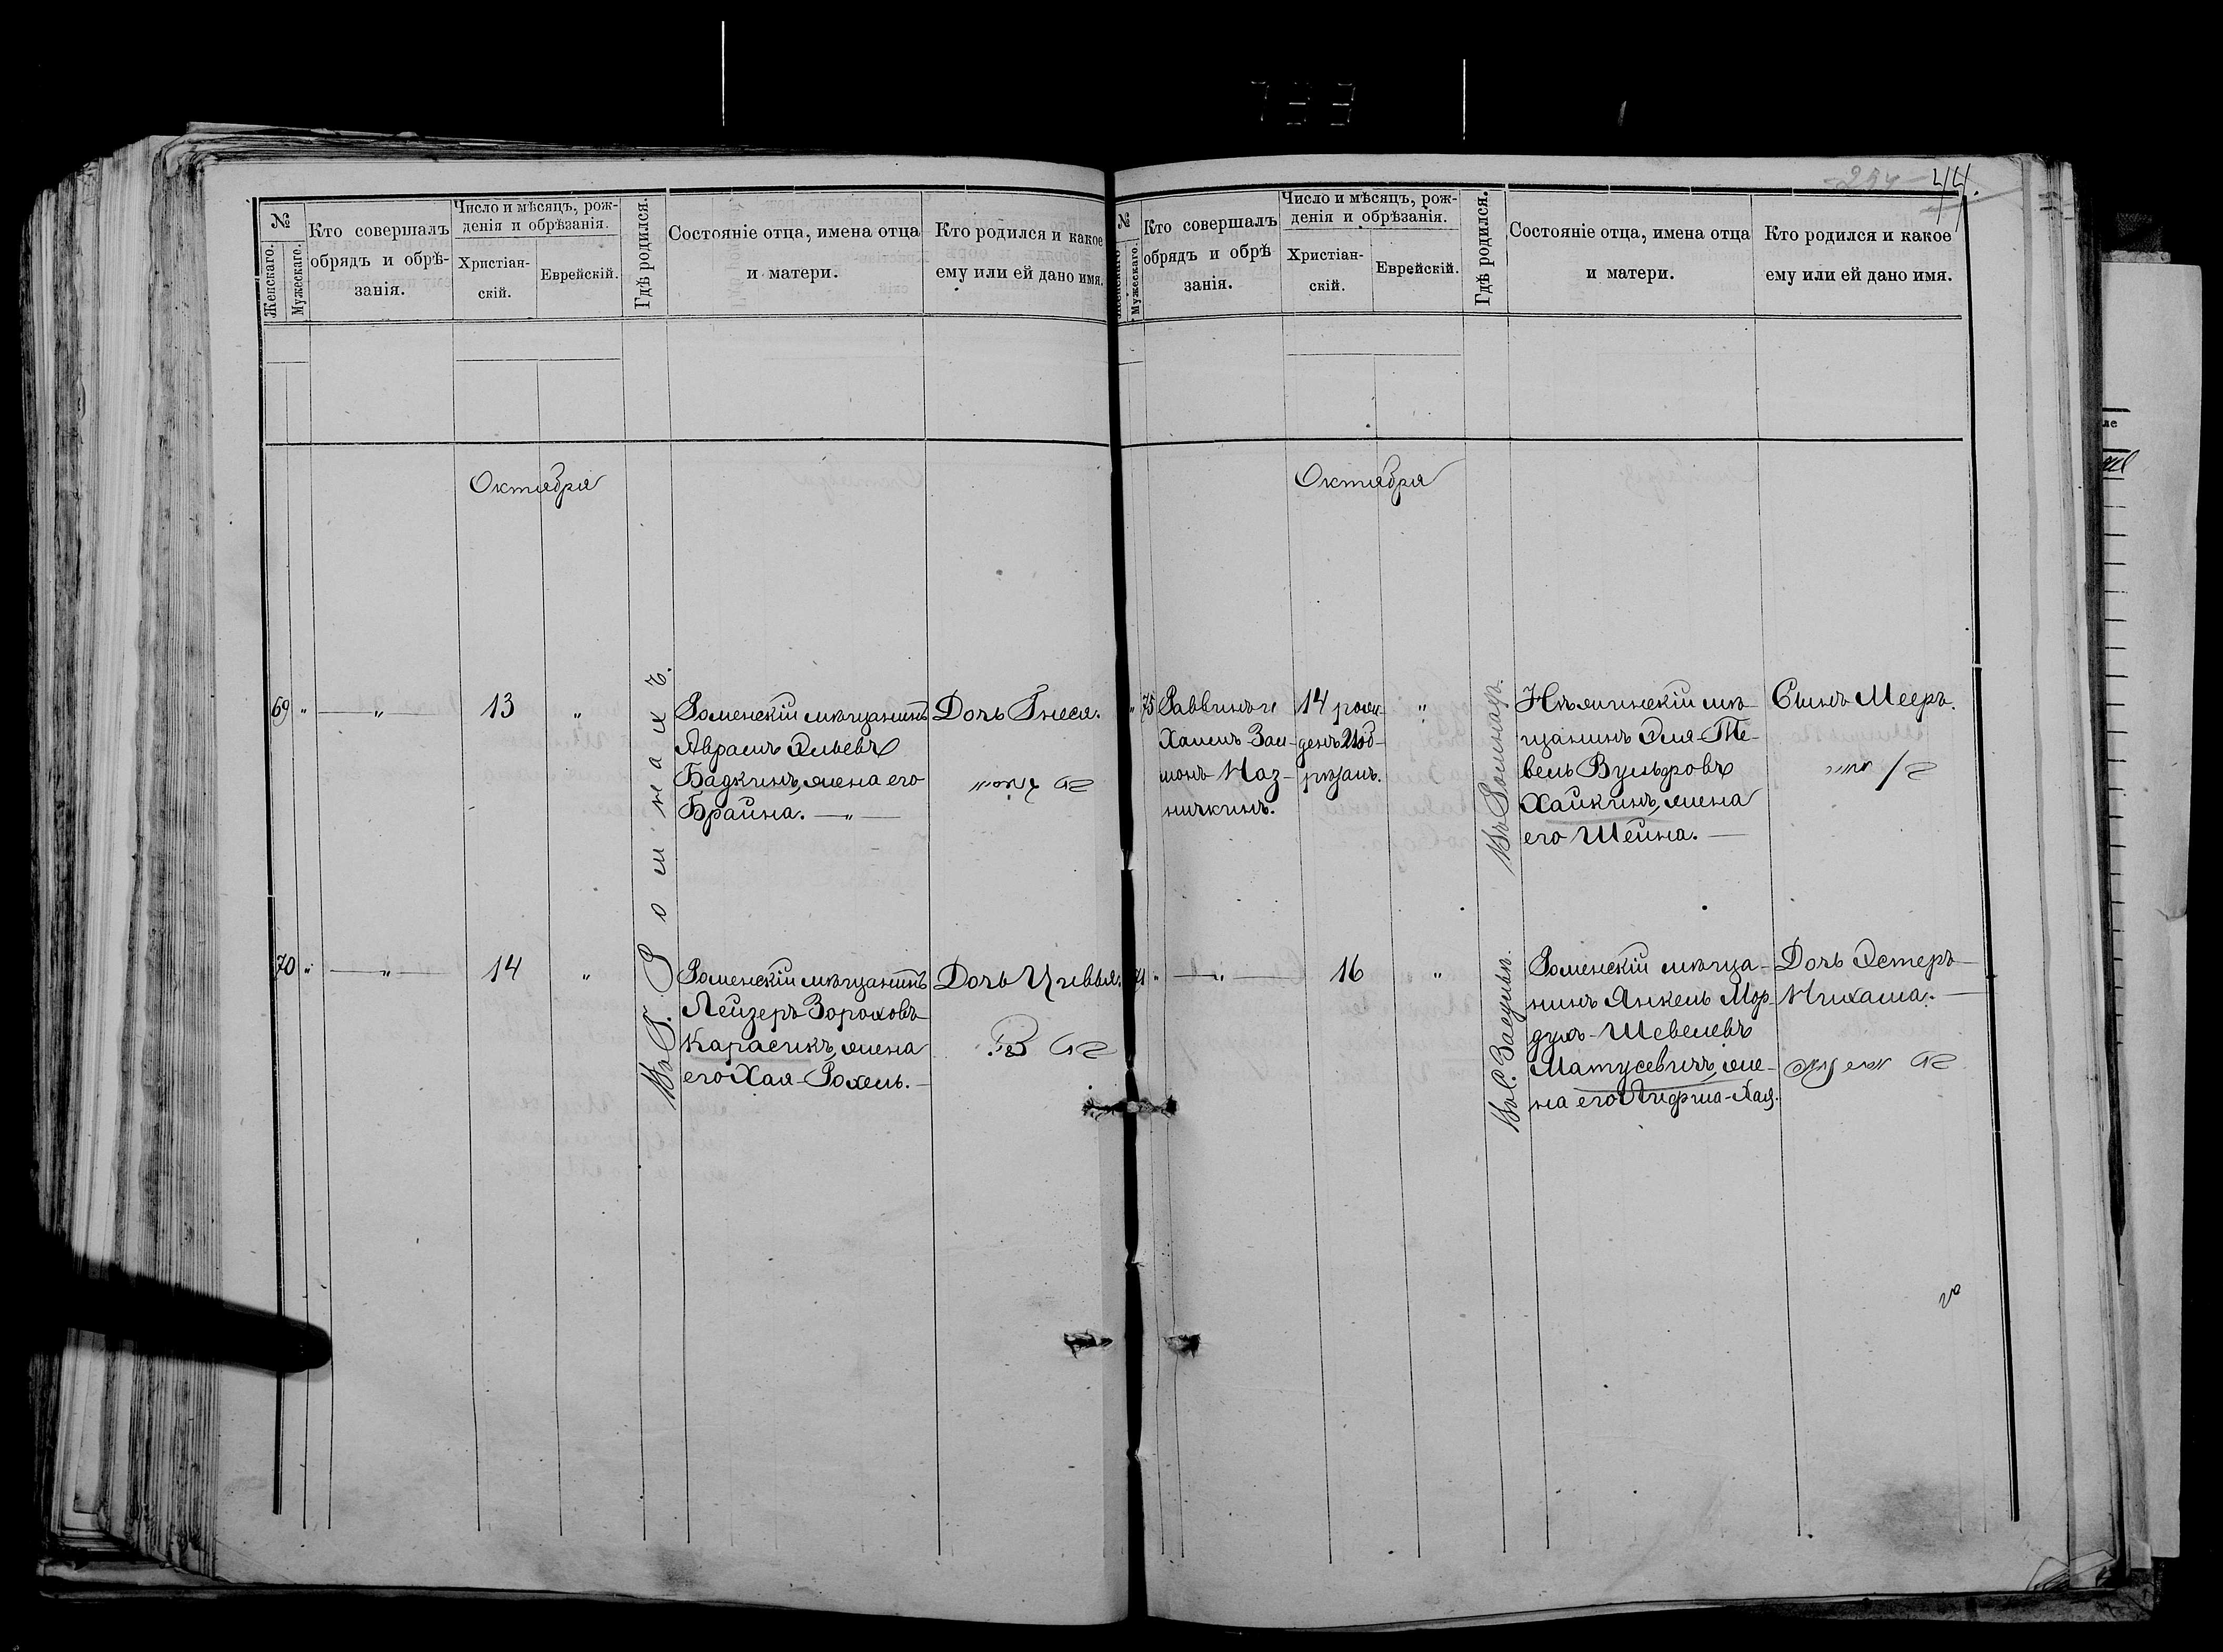 733
№
Женскаго.
Мужескаго.
Кто совершалъ
обрядъ и обрѣ-
занія.
Число и мѣсяцъ, рож-
денія и обрѣзанія.
Христіан-
скій.
Еврейскій.
Гдѣ родился.
Состояніе отца, имена отца
и матери.
Кто родился и какое
ему или ей дано имя.
Октября
69 " — " — 13 "
Роменскій мѣщанинъ
Авраамъ Эльевъ
Бадкинъ, жена его
Брайна. — " —
Дочь Гнеся.
70 " — " — 14 "
Въ Г. Ромнахъ.
Роменскій мѣщанинъ
Лейзеръ Зороховъ
Карасикъ, жена
его Хая-Рохель. —
Дочь Цивья.
44.
№
Женскаго
Мужескаго.
Кто совершалъ
обрядъ и обрѣ
занія.
Число и мѣсяцъ, рож-
денія и обрѣзанія.
Христіан-
скій.
Еврейскій.
Гдѣ родился.
Состояніе отца, имена отца
и матери.
Кто родился и какое
ему или ей дано имя.
Октября
" 75
Раввинъ и
Хаимъ Зал-
монъ
14 рож-
денъ 21 об-
рѣзанъ.
"
Нѣжинскій мѣ-
щанинъ Эля-Те-
вель Вульфовъ
Хайкинъ, жена
его Шейна. —
Сынъ Мееръ.
71 " — " — 16 "
Роменскій мѣща-
нинъ Янкель Мор-
духъ-Шевелевъ
Матусевичъ, же-
на его
Дочь Эстеръ